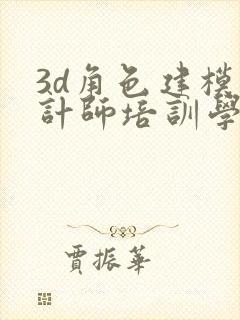 3d角色建模
計師培訓學
賈振華